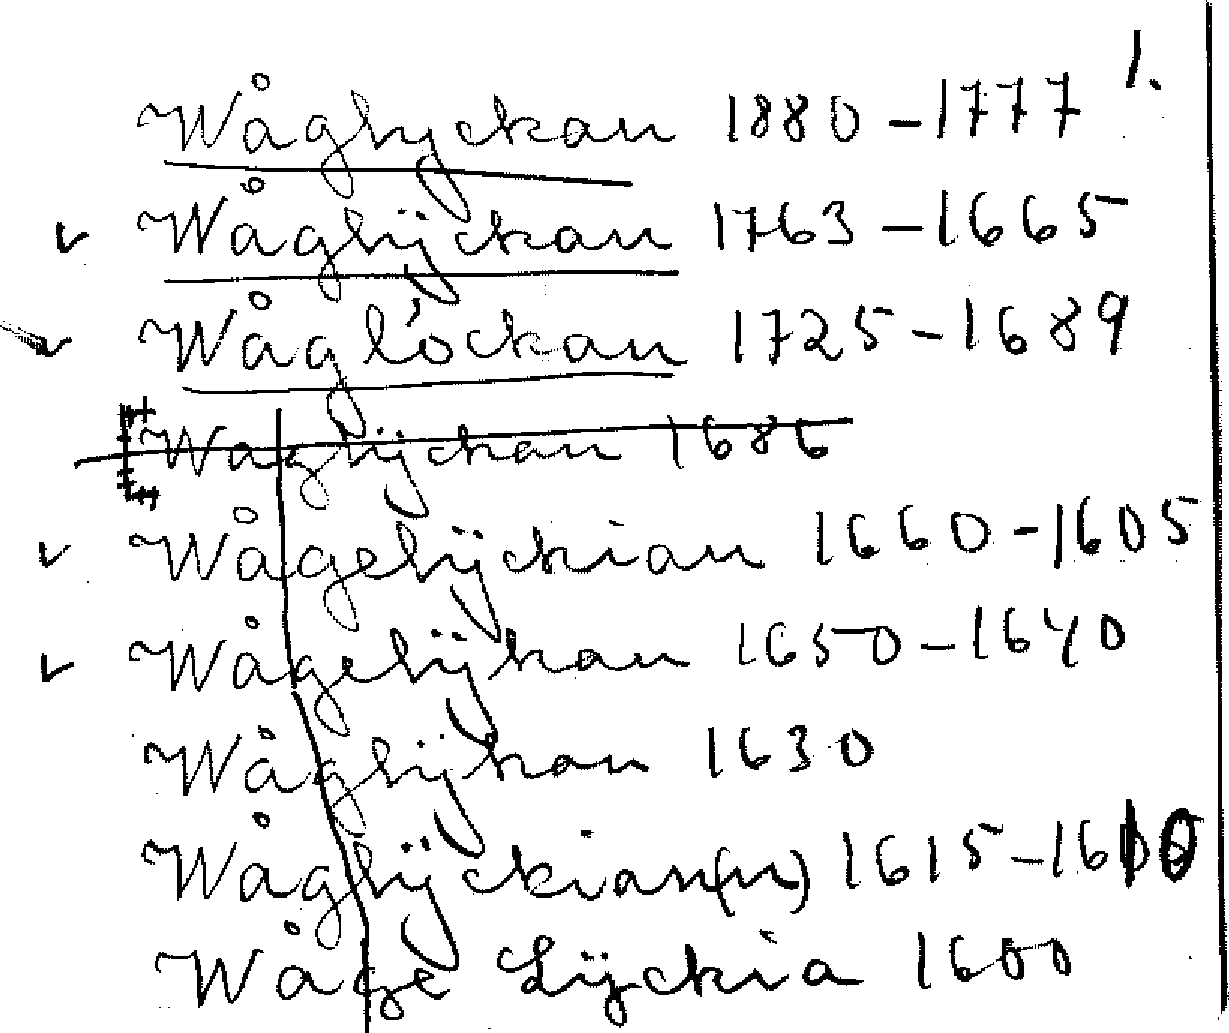 1.
Wåglyckan 1880-1777
Wåglÿckan 1763-1665
Wåglöckan 1725-1689
Waglÿckan 1686
Wågelÿckian 1660-1605
Wågelÿkan 1650-1640
Wåglÿkan 1630
Wåglÿckian(n) 1615-1610
Wåge Lÿckia 1600